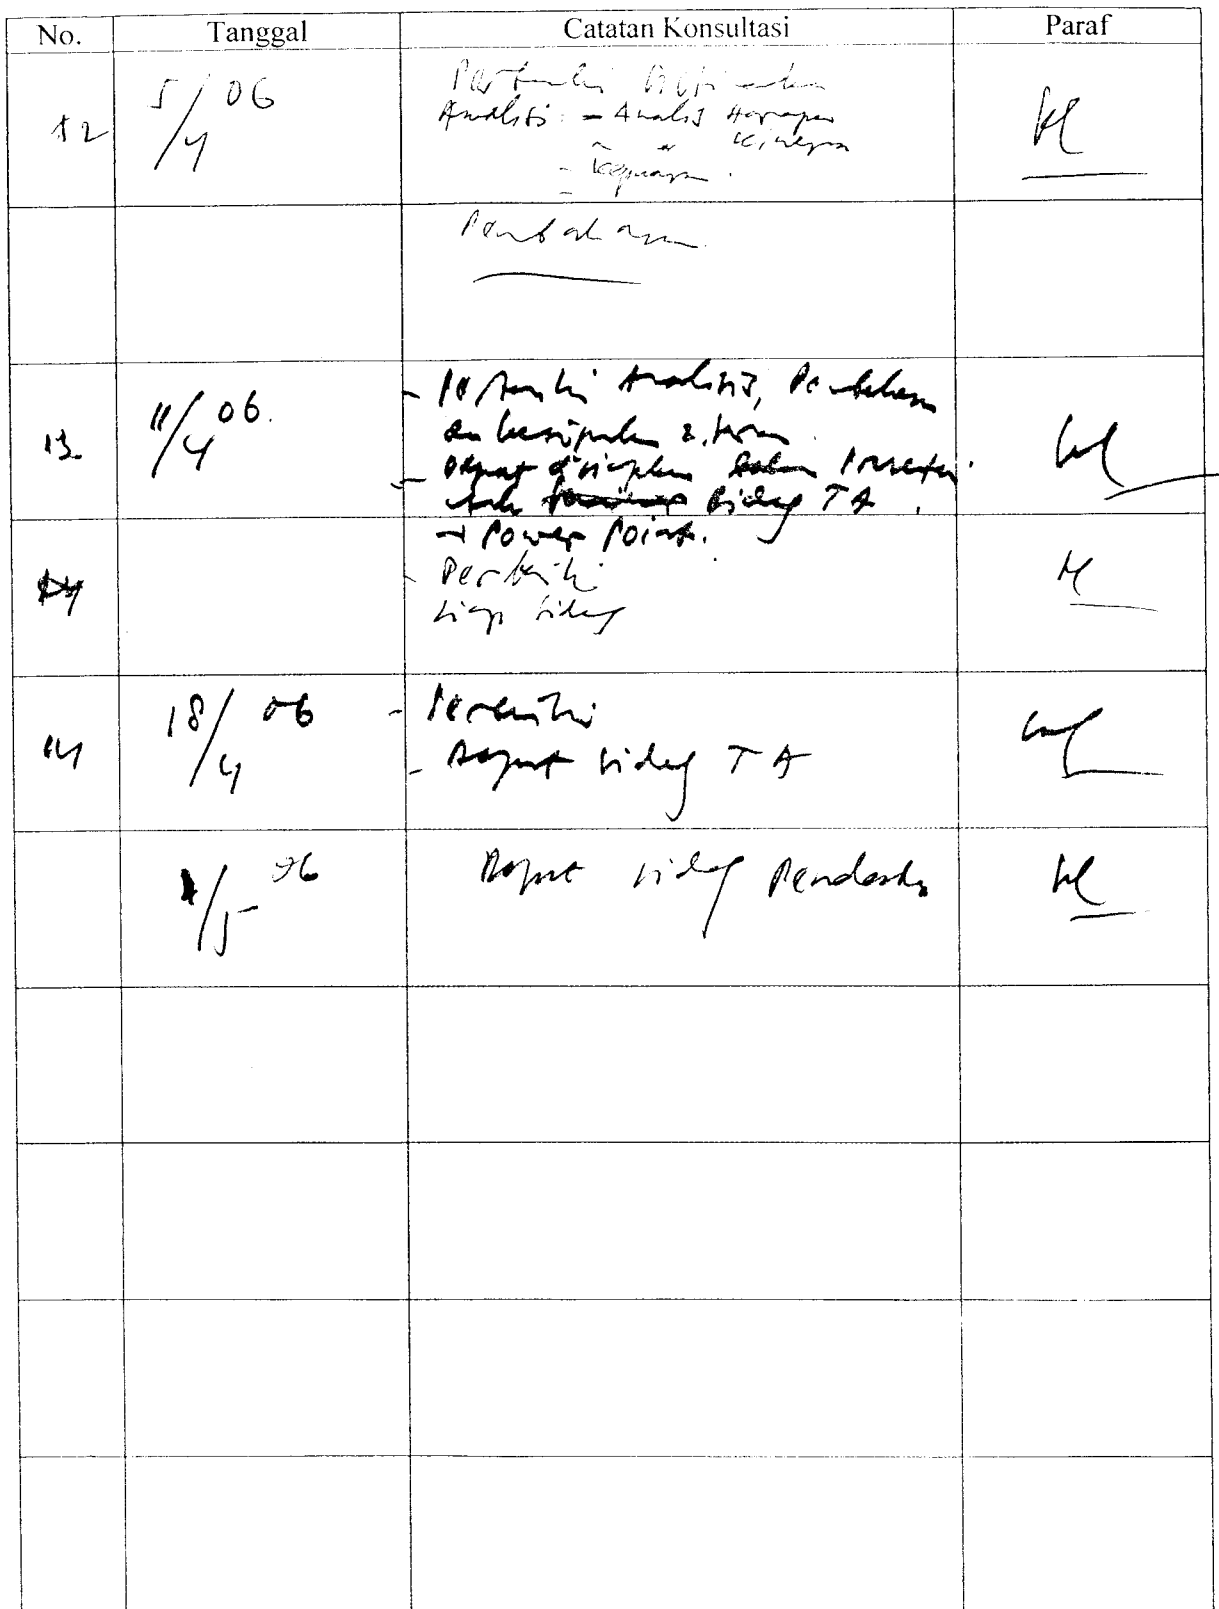 No. Tanggal Catatan Konsultasi Paraf
12 5/4 06 Perbaiki
Analisis: - Analisis Harapan
" " Kinerja
- " Kepuasan.
Pembahasan
13 11/4 06. - Perbaiki Analisis, Pembahasan
dan kesimpulan & saran.
- Dapat disiapkan
untuk Sidang TA.
→ Power Point.
14 - Perbaiki
siap sidang
14 18/4 06 - Perbaiki
- Dapat sidang TA
/5 06 Dapat sidang Pendadaran